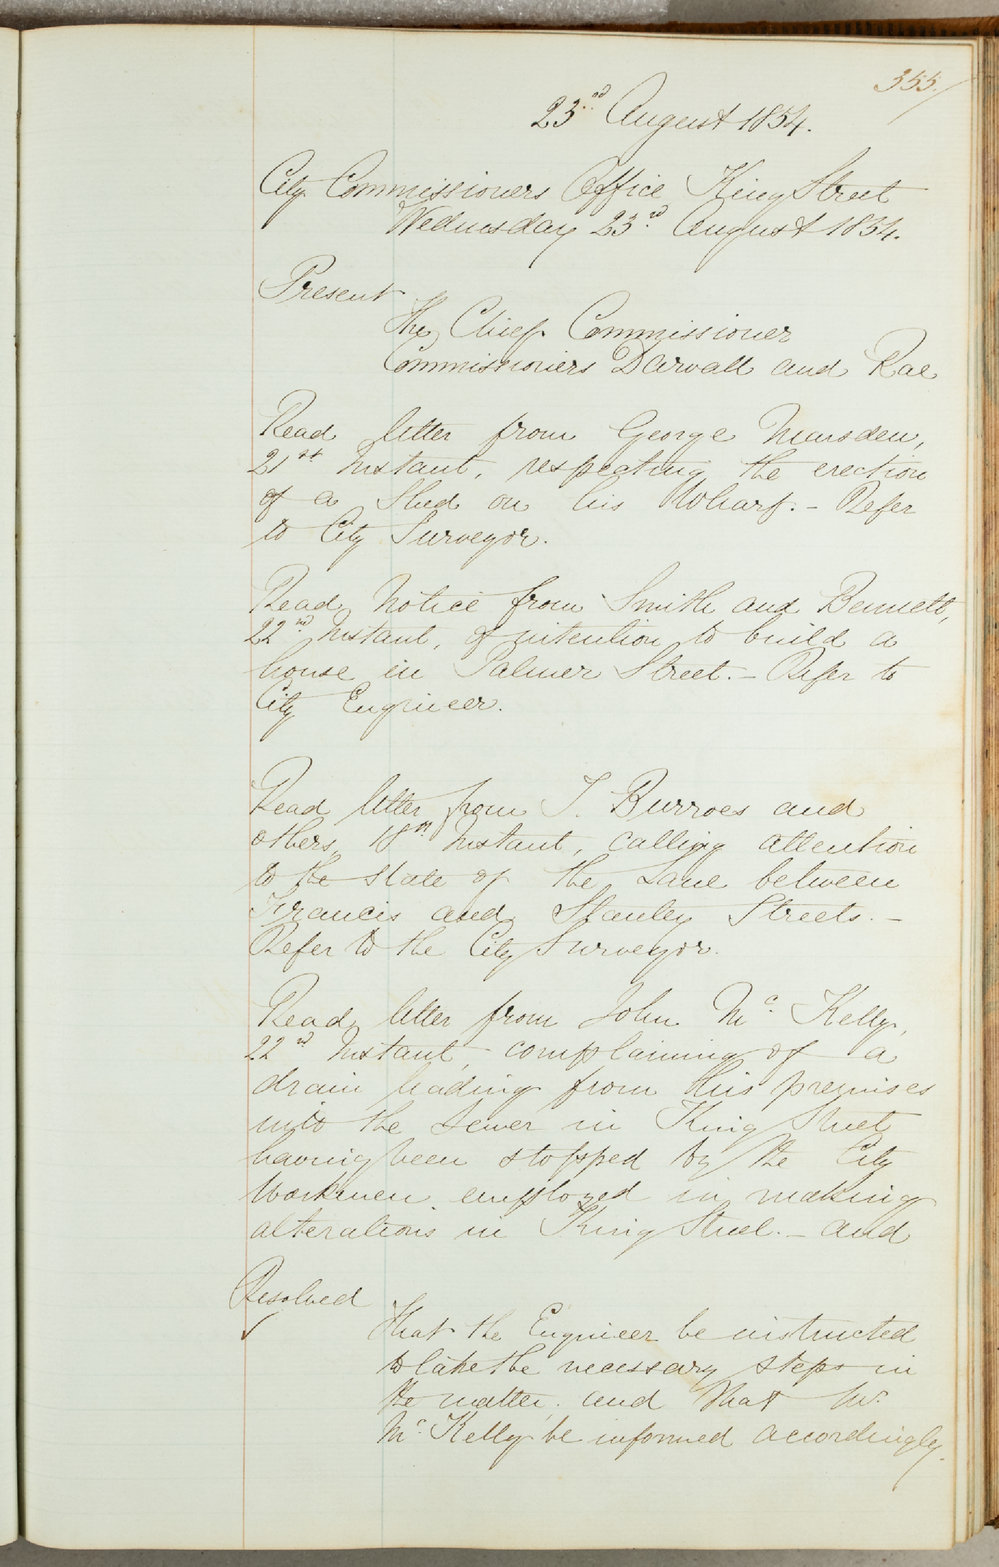 355.
23rd August 1854.
City Commissioners Office King Street
Wednesday 23rd August 1854.
Present
The Chief Commissioner
Commissioners Darvall and Rae
Read letter from George Marsden,
21st Instant, respecting the erection
of a Shed on his Wharf. - Refer
to City Surveyor.
Read Notice from Smith and Bennett,
22nd Instant, of intention to build a
house in Palmer Street. - Refer to
City Engineer.
Read letter from J. Burroes and
others, 18th Instant, calling attention
to the state of the Lane between
Francis and Stanley Streets. -
Refer to the City Surveyor.
Read letter from John Mc Kelly,
22nd Instant, complaining of a
drain leading from this premises
into the sewer in King Street
having been stopped by the City
Workmen employed in making
alterations in King Street. - and
Resolved
That the Engineer be instructed
to take the necessary steps in
the matter, and that Mr
Mc Kelly be informed accordingly.